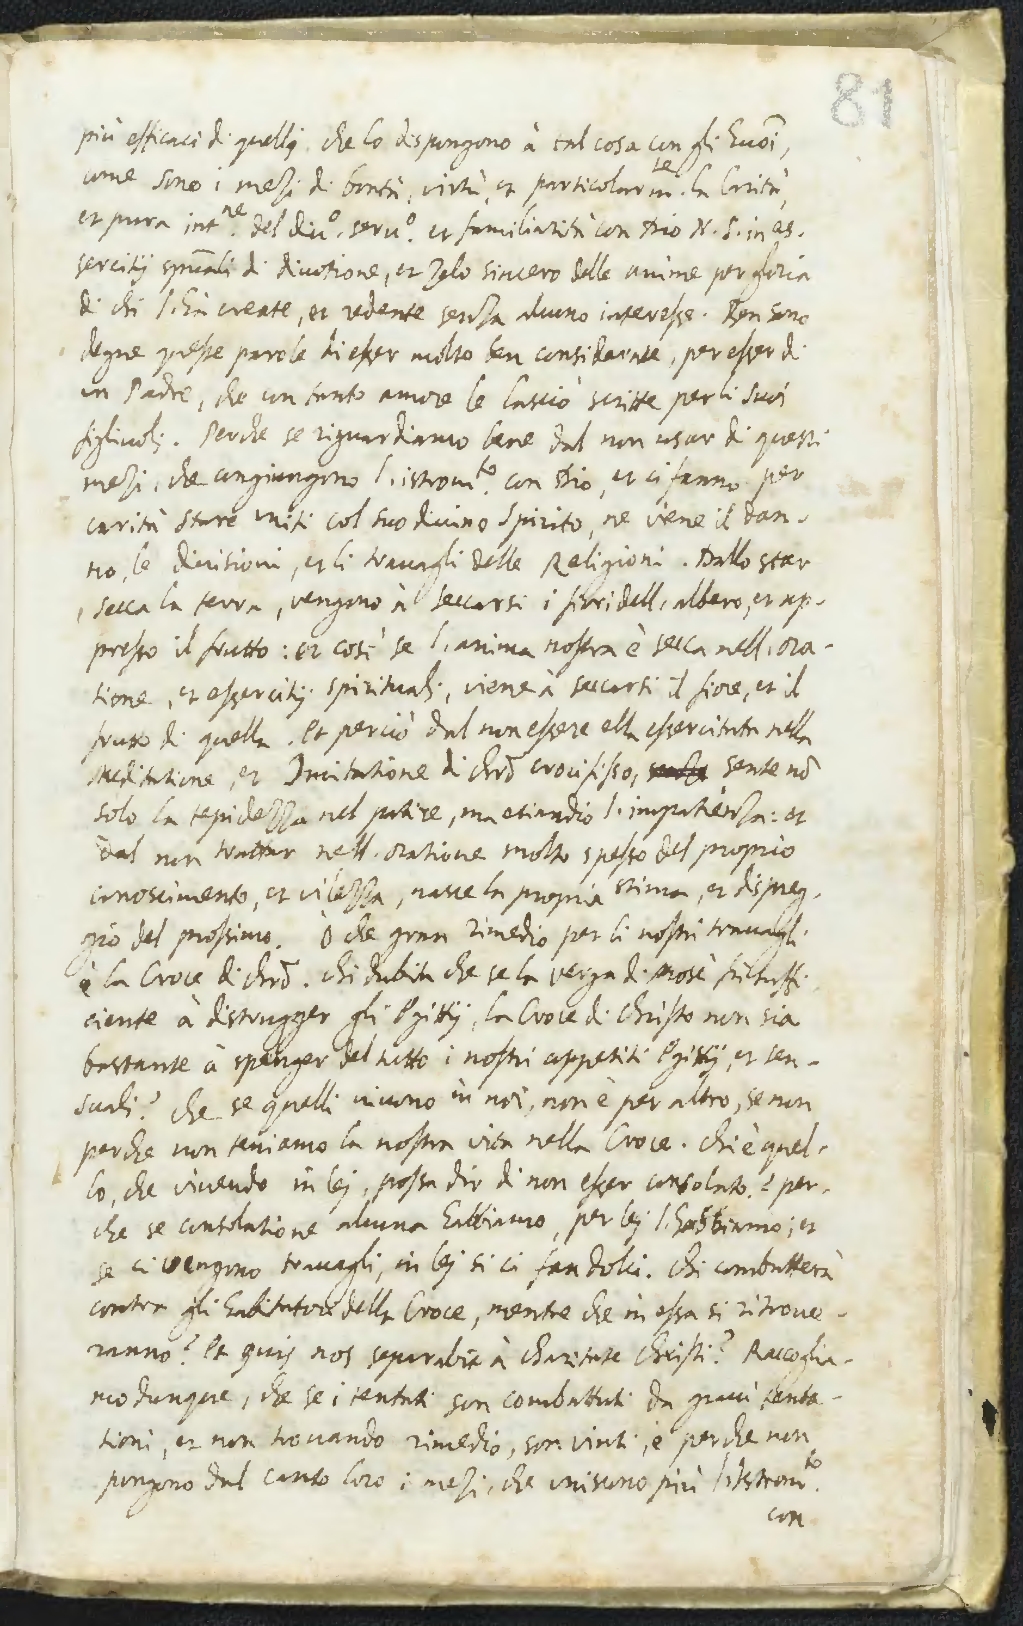 81
più efficaci di quelli, che lo dispongono à tal cosa con gli huoi,
come sono i mezi di bontà, virtù, et particolarm.te la Carità,
et pura int.ne del diu.o seru.o et familiarità con Dio N. S. in es-
sercitij spũali di diuotione, et Zelo sincero delle anime per gloria
di chi l'hà create, et redente senza alcuno interesse. Ben sono
degne queste parole di esser molto ben considerate, per esser di
un Padre, che con tanto amore le lasciò scritte per li Suoi
figliuoli. Perche se riguardiamo bene dal non usar di questi
mezi, che congiungono l'istrom.to con Dio, et ci fanno per
carità stare uniti col suo diuino Spirito, ne viene il dan-
no, le diuisioni, et li trauagli delle Religioni. Dallo star
secca la terra, vengono à seccarsi i fiori dell'albero, et ap-
presso il frutto: et così se l'anima nostra è secca nell'ora-
tione, et essercitij spirituali, viene à seccarsi il fiore, et il
frutto di quella. Et perciò dal non essere ella essercitata nella
Meditatione, et Imitatione di chrõ crocifisso, sente nõ
solo la tepidezza nel patire, ma etiandio l'impatienza: et
dal non trattar nell'oratione molto spesso del proprio
conoscimento, et vilezza, nasce la propria stima, et dispreg-
gio del prossimo. Ò che gran rimedio per li nostri trauagli
è la Croce di chrõ. Chi dubita che se la verga di Mosè fù suffi-
ciente à distrugger gli Egittij, la Croce di Christo non sia
bastante à spenger del tutto i nostri appetiti Egittij, et sen-
suali? Che se quelli viuono in noi, non è per altro, se non
perche non teniamo la nostra vita nella Croce. Chi è quel-
lo, che viuendo in lej, possa dir di non esser consolato? per-
che se consolatione alcuna habbiamo, per lej l'habbiamo; et
se ci vengono trauagli, in lej si ci fan dolci. Chi combatterà
contra gli habitatori della Croce, mentre che in essa si ritroue-
ranno? Et quis nos separabit à charitate Christi? Raccoglia-
mo dunque, che se i tentati son combattuti da graui tenta-
tioni, et non trouando rimedio, son vinti, è perche non
pongono dal canto loro i mezi, che uniscono più l'istrom.to
con